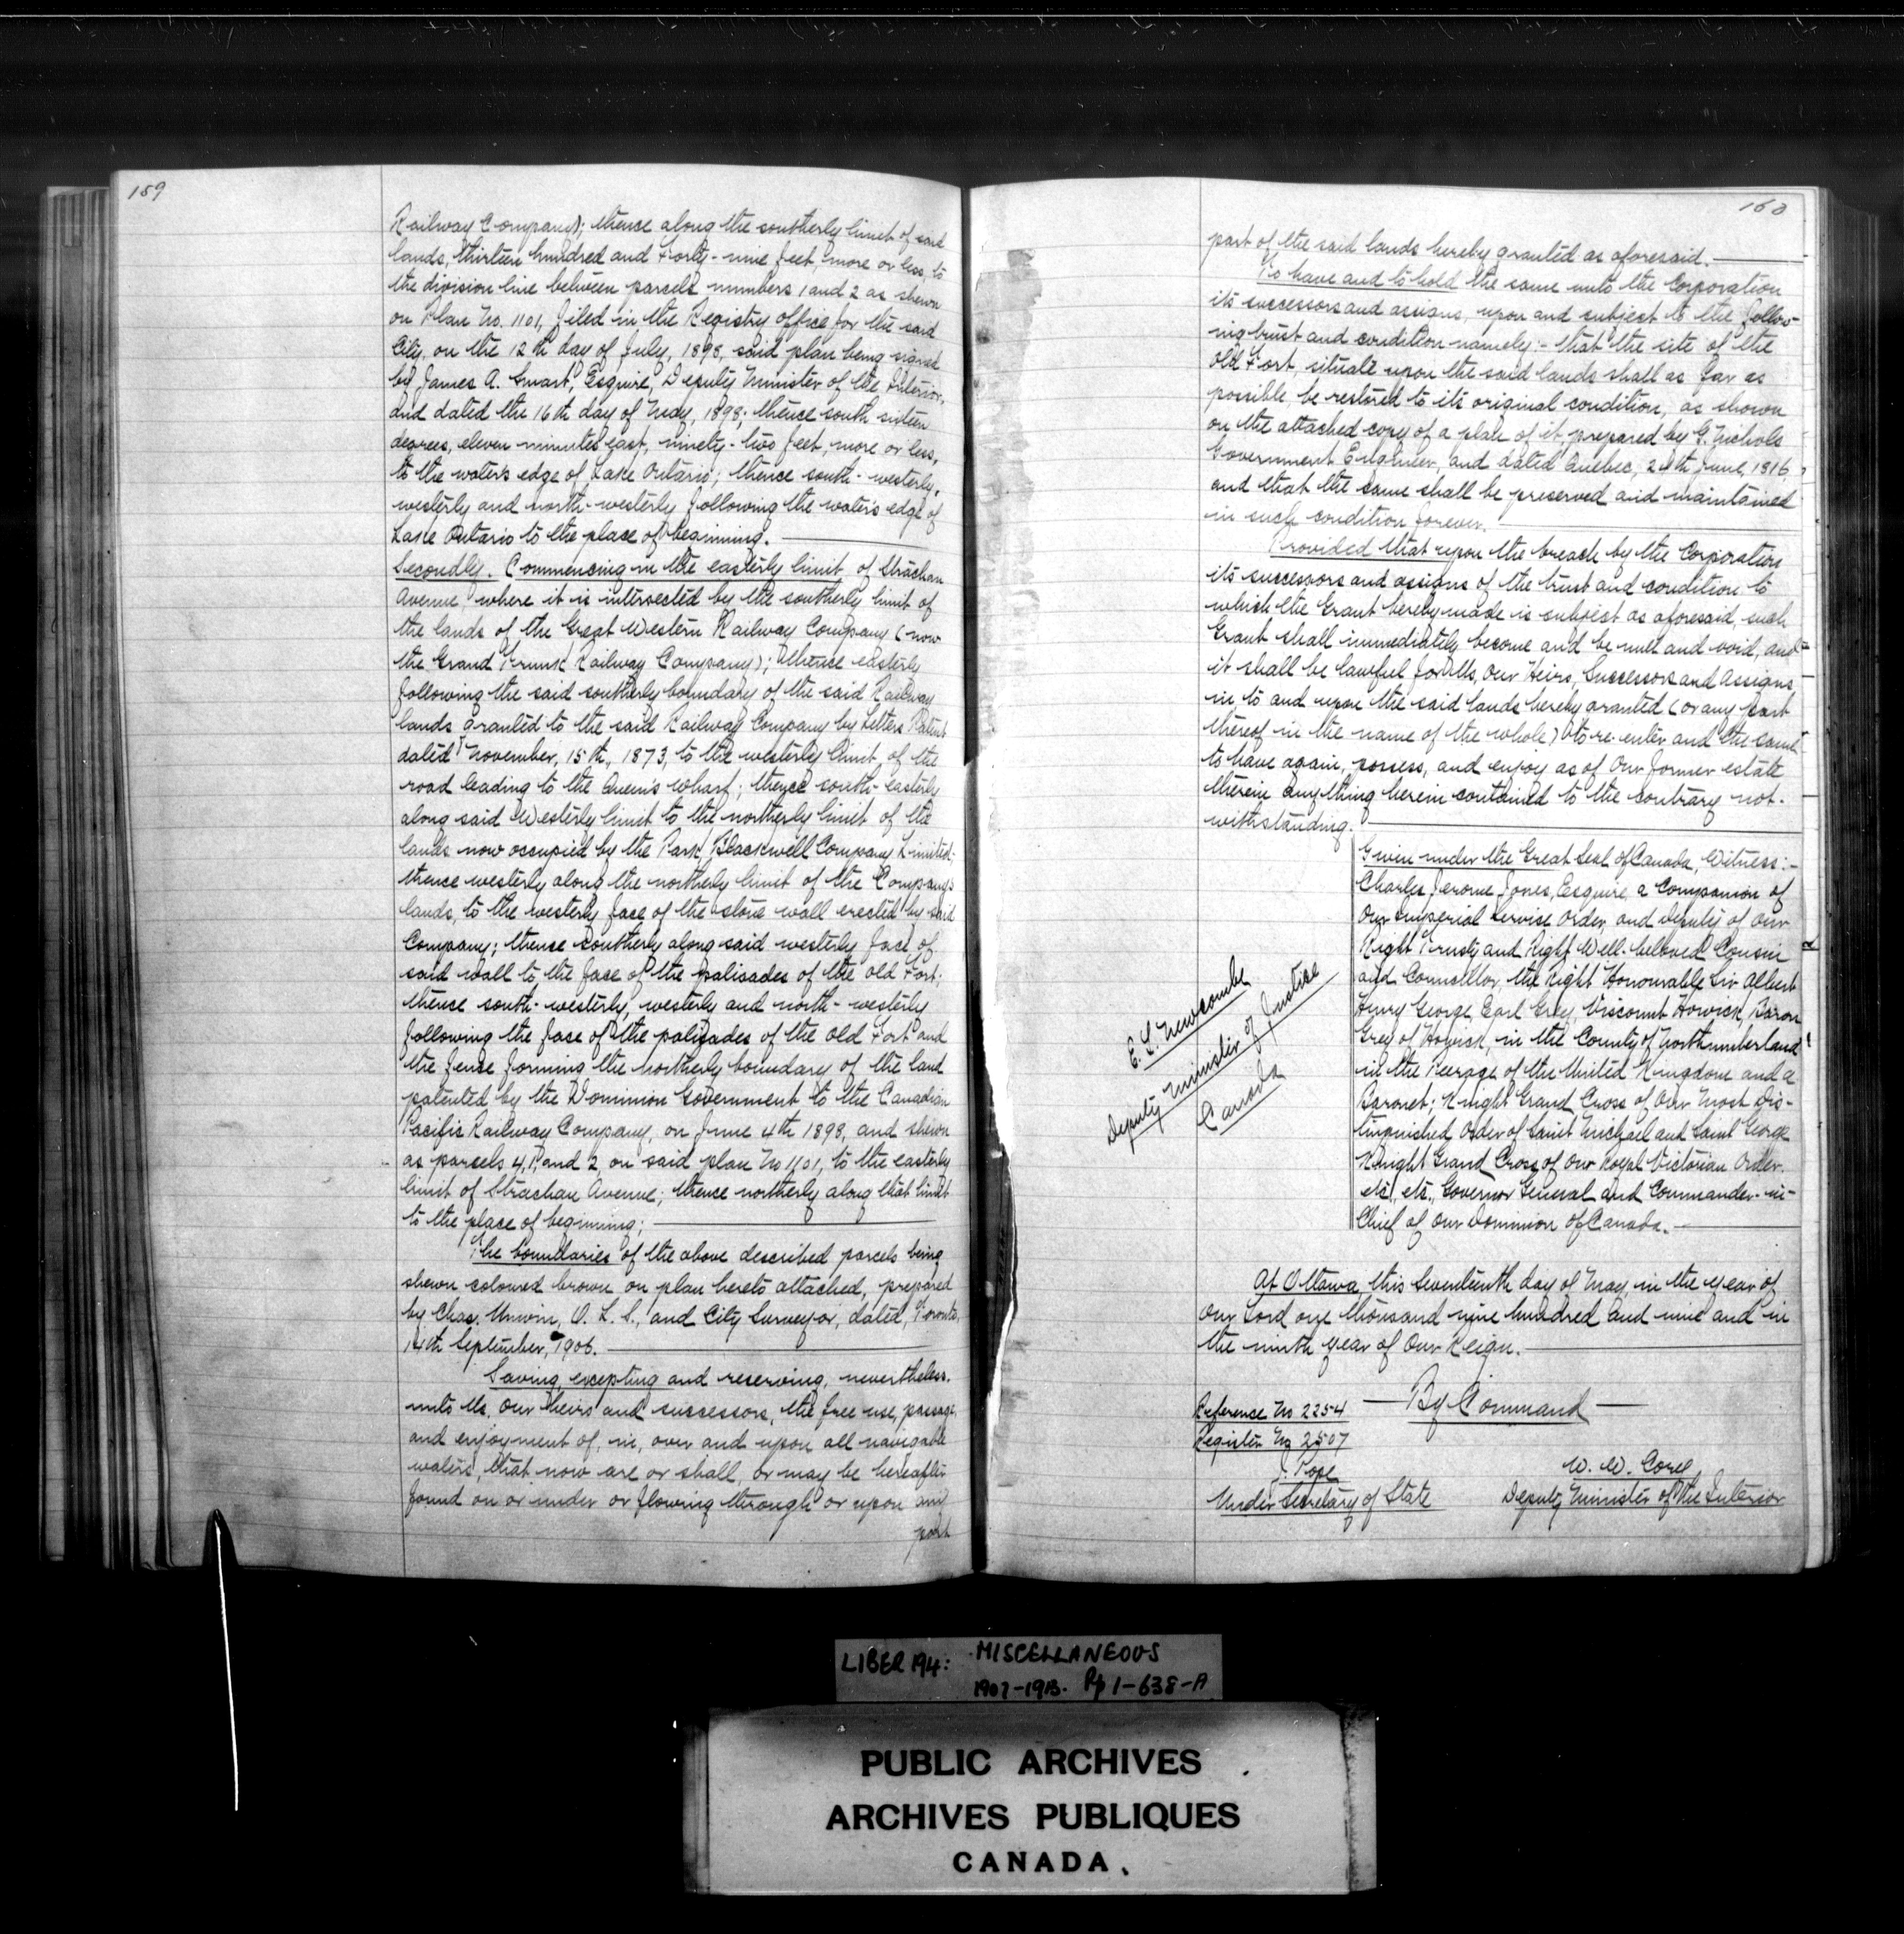 159
Railway Company); thence along the southerly limit of said
lands, thirteen hundred and Forty-nine feet, more or less, to
the division line between parcels numbers 1 and 2 as shewn
on Plan No. 1101, filed in the Registry office for the said
City, on the 12th day of July, 1898, said plan being signed
by James A. Smart, Esquire, Deputy Minister of the Interior,
and dated the 16th day of May, 1898; thence south sixteen
degrees, eleven minutes east, ninety-two feet, more or less,
to the water's edge of Lake Ontario; thence south-westerly,
westerly and north-westerly following the water's edge of
Lake Ontario to the place of beginning.
Secondly. Commencing in the easterly limit of Strachan
Avenue where it is intersected by the southerly limit of
the lands of the Great Western Railway Company (now
the Grand Trunk Railway Company); thence easterly
following the said southerly boundary of the said Railway
lands granted to the said Railway Company by Letters Patent
dated November, 15th, 1873, to the westerly limit of the
road leading to the Queen's Wharf; thence south-easterly
along said Westerly limit to the northerly limit of the
lands now occupied by the Park, Blackwell Company Limited;
thence westerly along the northerly limit of the Company's
lands, to the westerly face of the stone wall erected by said
Company; thence southerly along said westerly face of
said wall to the face of the palisades of the old Fort;
thence south-westerly, westerly and north-westerly
following the face of the palisades of the old Fort and
the fence forming the northerly boundary of the land
patented by the Dominion Government to the Canadian
Pacific Railway Company, on June 4th 1898, and shewn
as parcels 4, 1, and 2, on said plan No 1101, to the easterly
limit of Strachan Avenue; thence northerly along that limit
to the place of beginning;
The boundaries of the above described parcels being
shewn coloured brown on plan hereto attached, prepared
by Chas. Unwin, O. L. S., and City Surveyor, dated, Toronto,
14th September, 1906.
Saving, excepting and reserving, nevertheless,
unto Us, Our heirs and successors, the free use, passage,
and enjoyment of, in, over and upon all navigable
waters, that now are or shall, or may be hereafter
found on or under or flowing through or upon any
part
160
part of the said lands hereby granted as aforesaid.
To have and to hold the same unto the Corporation
its successors and assigns, upon and subject to the follow-
ing trust and condition namely:- that the site of the
Old Fort, situate upon the said lands shall as far as
possible be restored to its original condition, as shown
on the attached copy of a plan of it, prepared by G. Nichols
Government Engineer, and dated Quebec, 24th June, 1816,
and that the same shall be preserved and maintained
in such condition forever.
Provided that upon the breach by the Corporation
its successors and assigns of the trust and condition to
which the Grant hereby made is subject as aforesaid, such
Grant shall immediately become and be null and void, and
it shall be lawful for Us, Our Heirs, Successors and Assigns
in to and upon the said lands hereby granted (or any part
thereof in the name of the whole) to re-enter and the same
to have again, possess, and enjoy as of Our former estate
therein anything herein contained to the contrary not-
withstanding.
Given under the Great Seal of Canada, Witness:-
Charles Jerome Jones, Esquire, a Companion of
Our Imperial Service Order, and Deputy of Our
Right Trusty and Right Well-beloved Cousin
and Councillor, the Right Honourable Sir Albert
Henry George, Earl Grey, Viscount Howick, Baron
Grey of Howick, in the County of Northumberland
in the Peerage of the United Kingdom and a
Baronet; Knight Grand Cross of Our Most Dis-
tinguished Order of Saint Michael and Saint George
Knight Grand Cross of Our Royal Victorian Order,
etc., etc., Governor General and Commander-in-
Chief of Our Dominion of Canada.
E. L. Newcombe
Deputy Minister of Justice
Canada
At Ottawa, this Seventeenth day of May, in the year of
Our Lord one thousand nine hundred and nine and in
the ninth year of Our Reign.
By Command
Reference No 2254
Register No 2507
J. Pope
Under Secretary of State
W. W. Cory
Deputy Minister of the Interior
LIBER 194: MISCELLANEOUS
1907-1913. Pp 1-638-A
PUBLIC ARCHIVES
ARCHIVES PUBLIQUES
CANADA